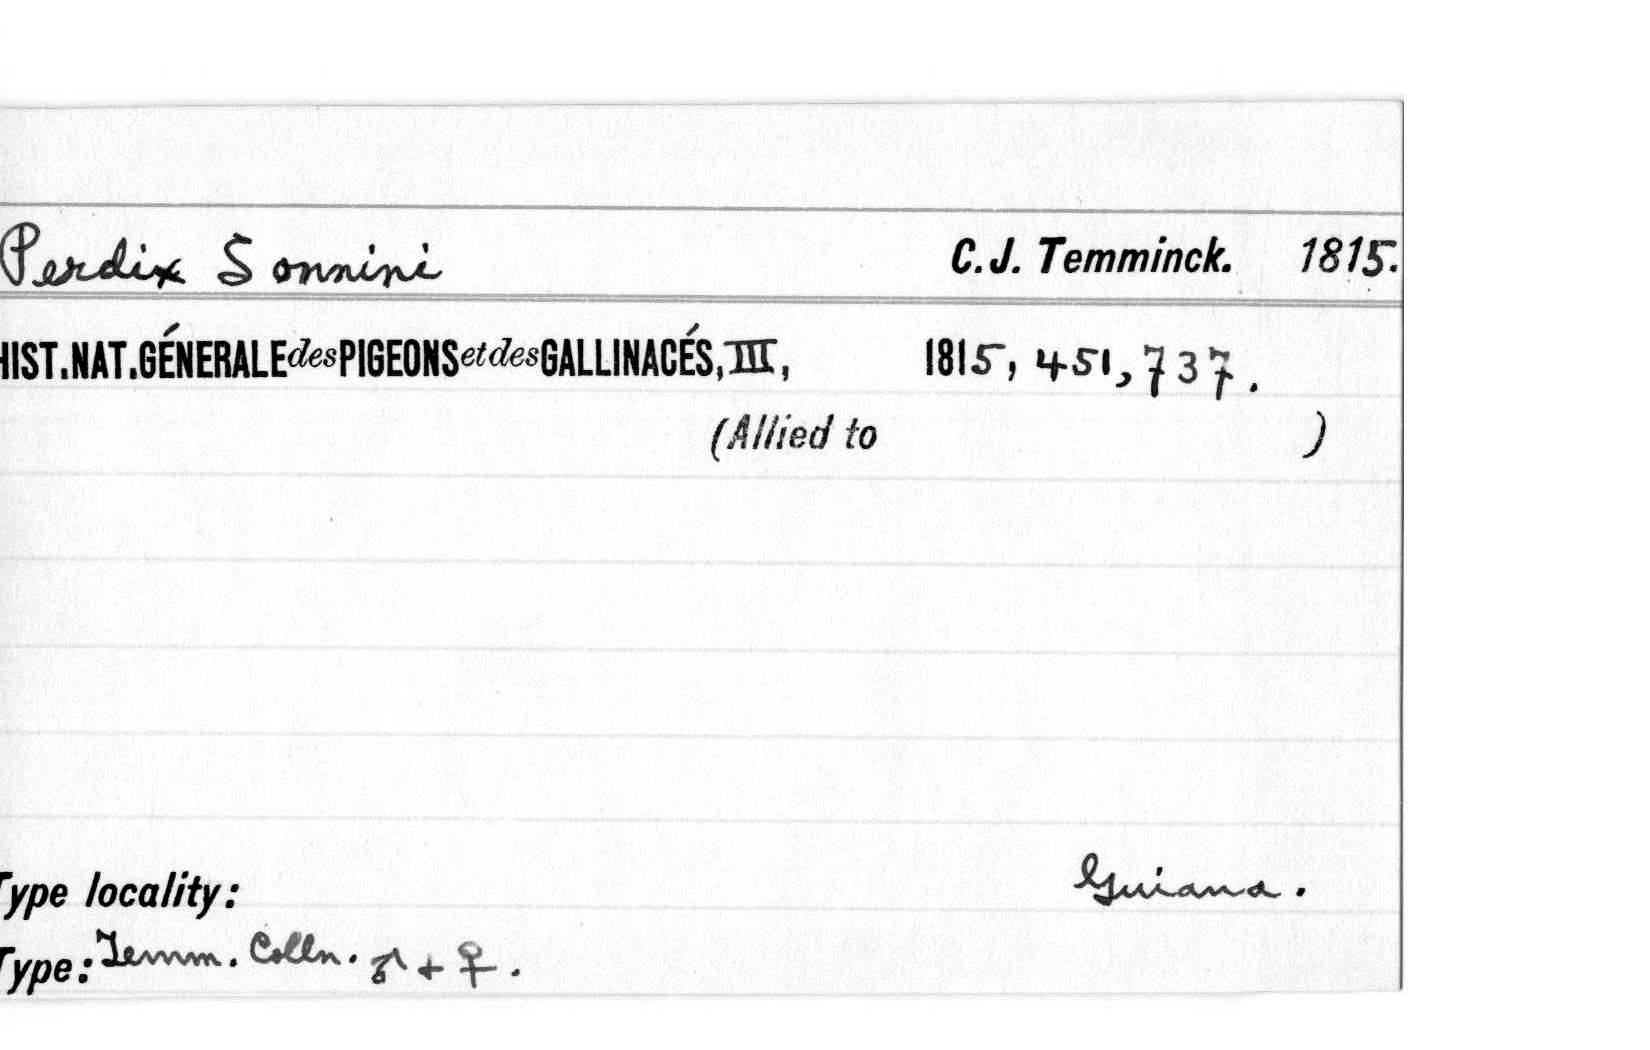 Perdix Sonnini C.J. Temminck. 1815.
HIST.NAT.GÉNERALE des PIGEONS et des GALLINACÉS, III, 1815, 451, 737.
(Allied to )
Type locality: Guiana.
Type: Temm. Colln. ♂ + ♀.